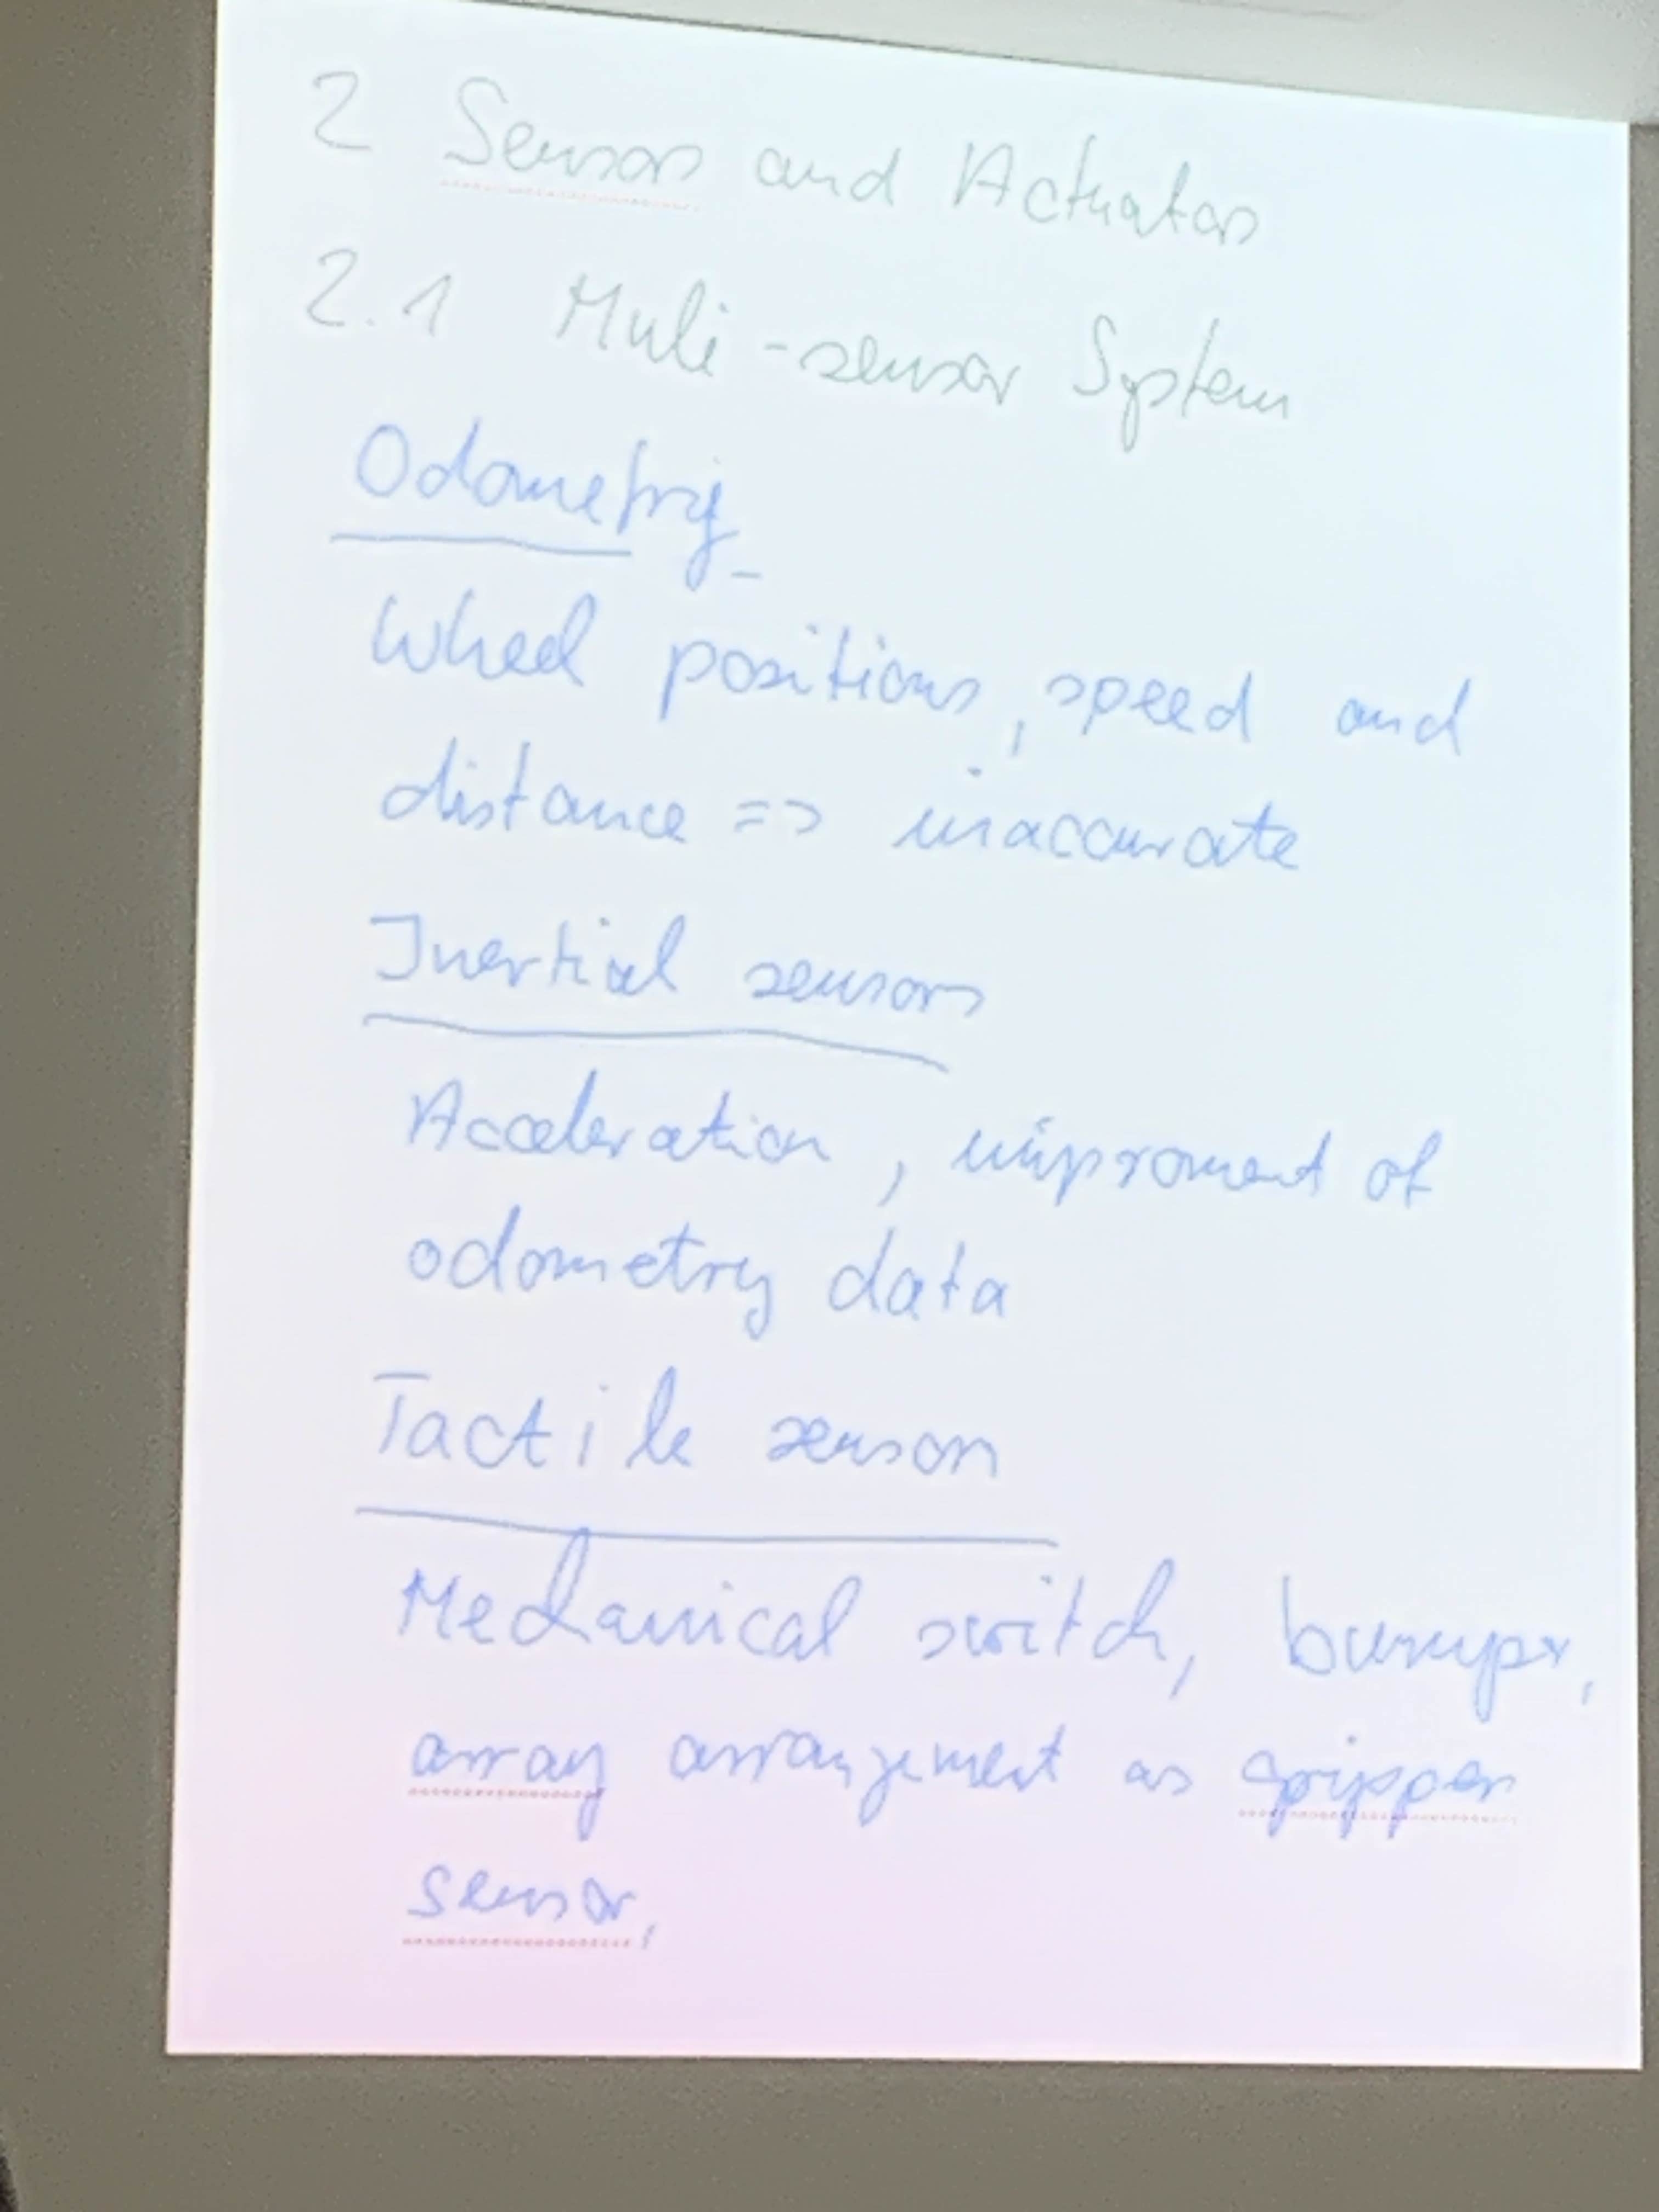 2 Sensors and Actuators
2.1 Muli-sensor System
Odometry
Wheel positions, speed and
distance => inaccurate
Inertial sensors
Acceleration, improment of
odometry data
Tactile sensors
Mechanical switch, bumpr,
array arrangement as gripper
sensor,